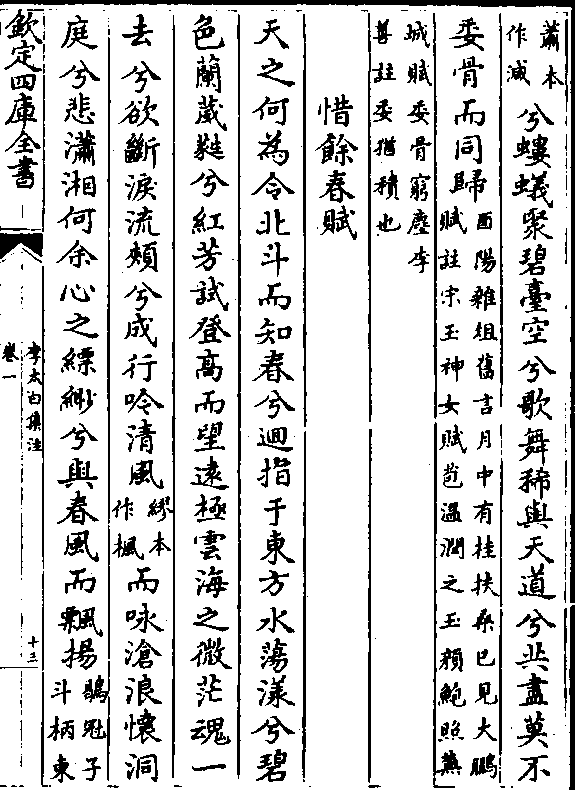 蕭本
作滅
兮螻蟻聚碧臺空兮歌舞稀與天道兮共盡莫不
委骨而同歸
酉陽雜俎舊言月中有桂扶桑已見大鵬
賦註宋玉神女賦苞溫潤之玉顏鮑照蕪
城賦委骨窮塵李
善註委猶積也
惜餘春賦
天之何為令北斗而知春兮迴指于東方水蕩漾兮碧
色蘭葳蕤兮紅芳試登高而望遠極雲海之微茫魂一
去兮欲斷淚流頰兮成行吟清風
繆本
作楓
而咏滄浪懷洞
庭兮悲瀟湘何余心之縹緲兮與春風而飄揚
鶡冠子
斗柄東
欽定四庫全書
李太白集注
卷一
十三